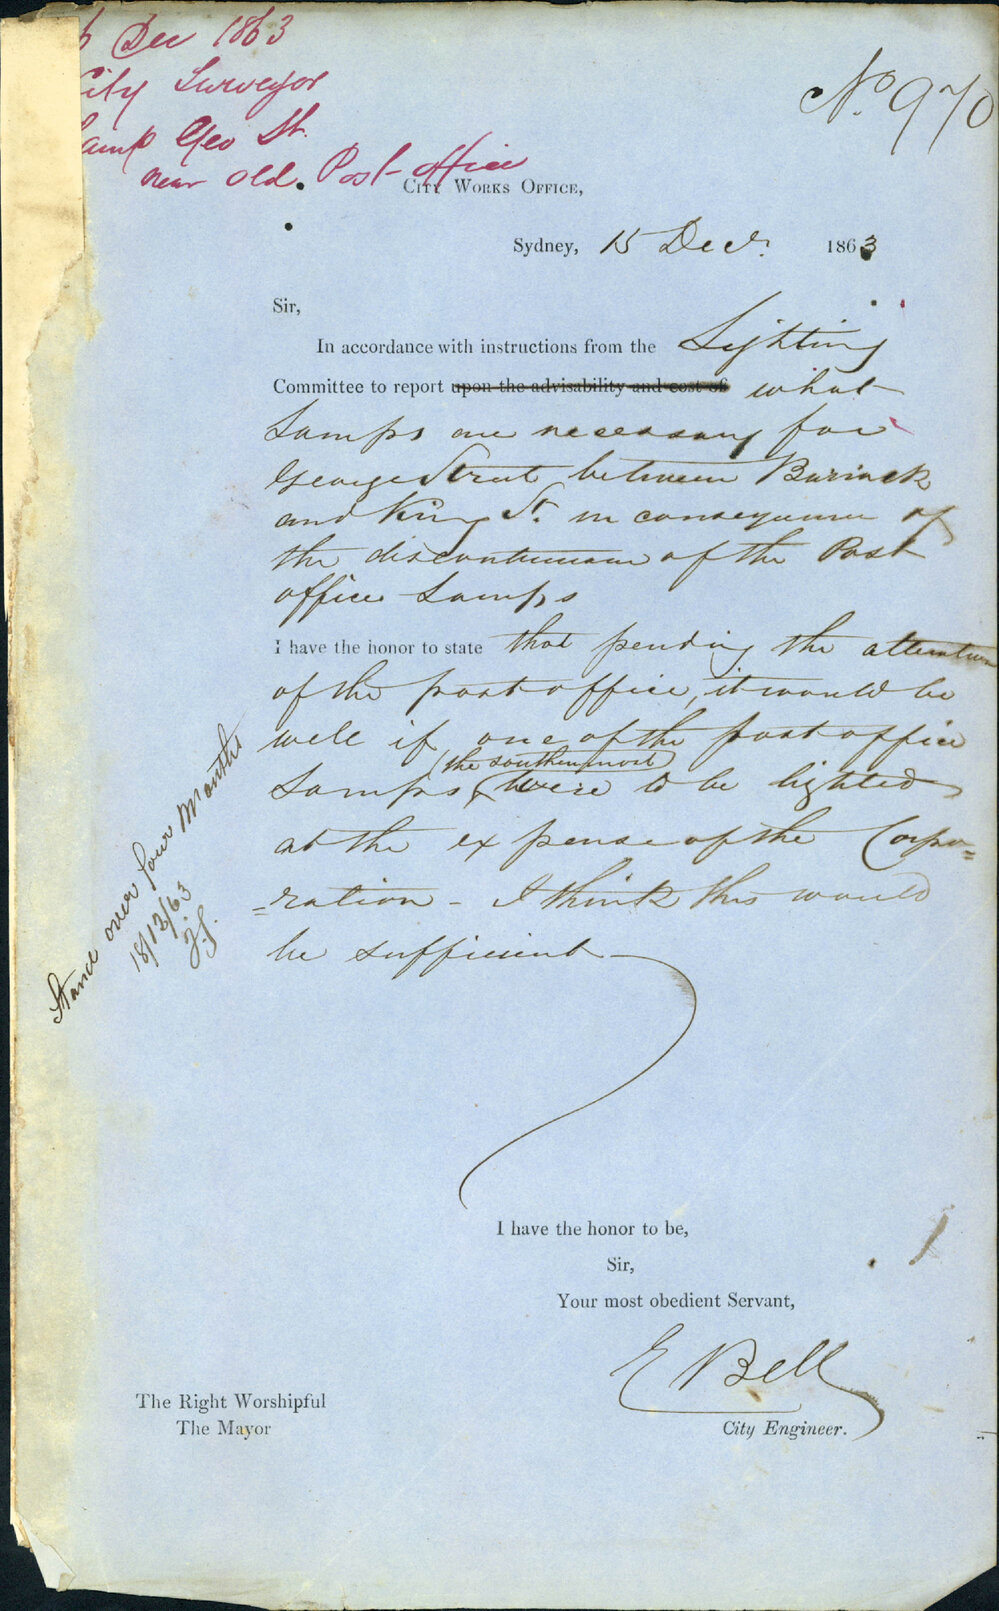 6 Dec 1863
City Surveyor
Lamp Geo St.
near old Post-office
No. 970
City Works Office,
Sydney, 15 Decr. 1863
Sir,
In accordance with instructions from the Lighting
Committee to report upon the advisability and cost of what
Lamps are necessary for
George Street between Barrack
and King St. in consequence of
the discontinuance of the Post
office Lamps
I have the honor to state that pending the alteration
of the post office, it would be
well if one of the post office
Lamps (the southernmost) were to be lighted
at the expense of the Corpo=
=ration - I think this would
be sufficient
Stand over four Months
18/12/63
I have the honor to be,
Sir,
Your most obedient Servant,
E Bell
City Engineer.
The Right Worshipful
The Mayor